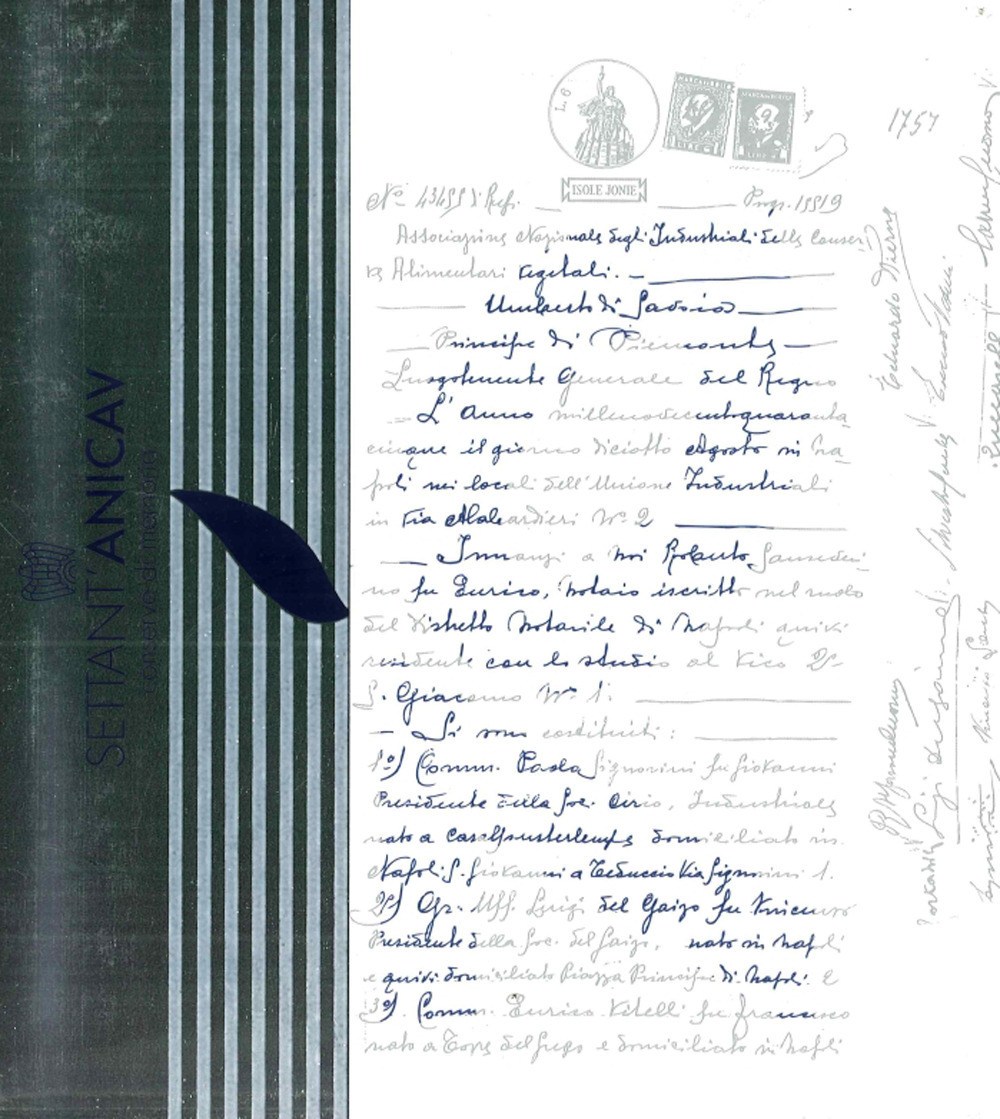 SETTANT'ANICAV
conserve di memoria
L. 6
MARCA DA BOLLO
LIRE
MARCA DA BOLLO
LIRE
ISOLE JONIE
1757
No 43455 di Rep. Progr. 15519
Associazione Nazionale degli Industriali delle Conser-
ve Alimentari Vegetali. —
Umberto di Savoia
Principe di Piemonte
Luogotenente Generale del Regno
L'Anno millenovecentoquaranta
cinque il giorno diciotto Agosto in Na
poli nei locali dell'Unione Industriali
in Via Alabardieri No 2
Innanzi a noi Roberto Sanseveri
no fu Enrico, notaio iscritto nel ruolo
del Distretto Notarile di Napoli quivi
residente con lo studio al Vico 2o
S. Giacomo No 1:
— Si sono costituiti:
1o) Comm. Paolo Signorini fu Giovanni
Presidente della Soc. Cirio, Industriale
nato a domiciliato in
Napoli S. Giovanni a Teduccio Via Signorini 1.
2o) Gr. Uff. Luigi del Gaizo fu Vincenzo
Presidente della Soc. Del Gaizo, nato in Napoli
e quivi domiciliato Piazza Principe di Napoli. E
3o) Comm. Enrico Vitelli fu Francesco
nato a Torre del Greco e domiciliato in Napoli
Eduardo
Luigi